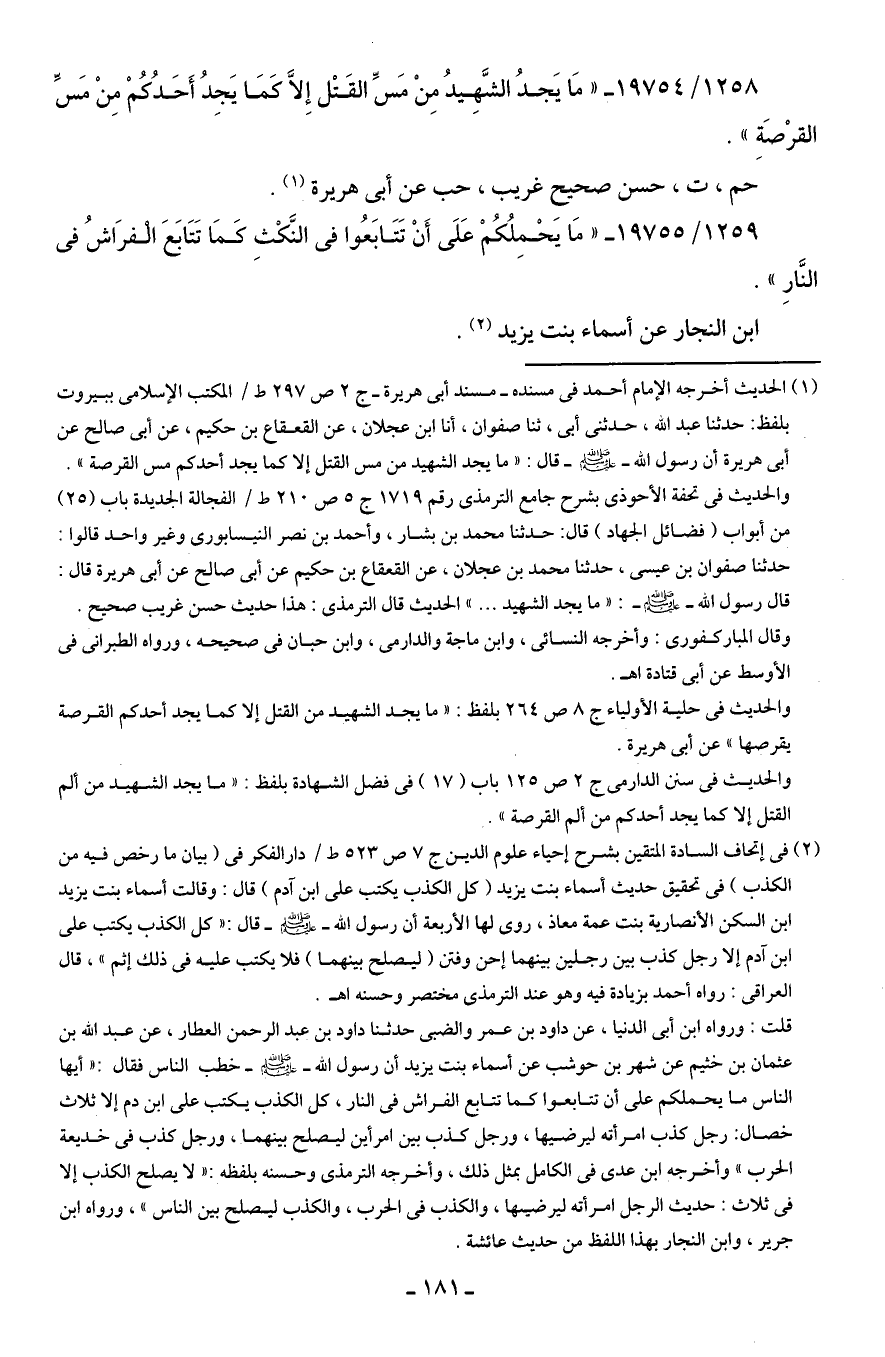 ١٢٥٨/ ١٩٧٥٤ـ « مَا يَجِدُ الشَّهِيدُ مِنْ مَسِّ القَتْلِ إِلاَّ كَمَا يَجِدُ أَحَدُكُمْ مِنْ مَسِّ
القرْصَةِ » .
حم ، ت ، حسن صحيح غريب ، حب عن أبى هريرة (١) .
١٢٥٩/ ١٩٧٥٥ـ « مَا يَحْمِلُكُمْ عَلَى أَنْ تَتَابَعُوا فى النَّكْثِ كَمَا تَتَابَعَ الْفراَشُ فى
النَّارِ » .
ابن النجار عن أسماء بنت يزيد (٢) .
(١) الحديث أخرجه الإمام أحمد فى مسنده ـ مسند أبى هريرة ـ ج ٢ ص ٢٩٧ ط / المكتب الإسلامى ببيروت
بلفظ: حدثنا عبد الله ، حدثنى أبى ، ثنا صفوان ، أنا ابن عجلان ، عن القعقاع بن حكيم ، عن أبى صالح عن
أبى هريرة أن رسول الله ـ ﷺ ـ قال : « ما يجد الشهيد من مس القتل إلا كما يجد أحدكم مس القرصة » .
والحديث فى تحفة الأحوذى بشرح جامع الترمذى رقم ١٧١٩ ج ٥ ص ٢١٠ ط / الفجالة الجديدة باب (٢٥)
من أبواب ( فضائل الجهاد ) قال: حدثنا محمد بن بشار ، وأحمد بن نصر النيسابورى وغير واحد قالوا :
حدثنا صفوان بن عيسى ، حدثنا محمد بن عجلان ، عن القعقاع بن حكيم عن أبى صالح عن أبى هريرة قال :
قال رسول الله ـ ﷺ ـ : « ما يجد الشهيد ... » الحديث قال الترمذى : هذا حديث حسن غريب صحيح .
وقال المباركفورى : وأخرجه النسائى ، وابن ماجة والدارمى ، وابن حبان فى صحيحه ، ورواه الطبرانى فى
الأوسط عن أبى قتادة اهـ .
والحديث فى حلية الأولياء ج ٨ ص ٢٦٤ بلفظ : « ما يجد الشهيد من القتل إلا كما يجد أحدكم القرصة
يقرصها » عن أبى هريرة .
والحديث فى سنن الدارمى ج ٢ ص ١٢٥ باب ( ١٧ ) فى فضل الشهادة بلفظ : « ما يجد الشهيد من ألم
القتل إلا كما يجد أحدكم من ألم القرصة » .
(٢) فى إتحاف السادة المتقين بشرح إحياء علوم الدين ج ٧ ص ٥٢٣ ط / دارالفكر فى ( بيان ما رخص فيه من
الكذب ) فى تحقيق حديث أسماء بنت يزيد ( كل الكذب يكتب على ابن آدم ) قال : وقالت أسماء بنت يزيد
ابن السكن الأنصارية بنت عمة معاذ ، روى لها الأربعة أن رسول الله ـ ﷺ ـ قال :« كل الكذب يكتب على
ابن آدم إلا رجل كذب بين رجلين بينهما إحن وفتن ( ليصلح بينهما ) فلا يكتب عليه فى ذلك إثم » ، قال
العراقى : رواه أحمد بزيادة فيه وهو عند الترمذى مختصر وحسنه اهـ .
قلت : ورواه ابن أبى الدنيا ، عن داود بن عمر والضبى حدثنا داود بن عبد الرحمن العطار ، عن عبد الله بن
عثمان بن خثيم عن شهر بن حوشب عن أسماء بنت يزيد أن رسول الله ـ ﷺ ـ خطب الناس فقال :« أيها
الناس ما يحملكم على أن تتابعوا كما تتابع الفراش فى النار ، كل الكذب يكتب على ابن دم إلا ثلاث
خصال: رجل كذب امرأته ليرضيها ، ورجل كذب بين امرأين ليصلح بينهما ، ورجل كذب فى خديعة
الحرب » وأخرجه ابن عدى فى الكامل بمثل ذلك ، وأخرجه الترمذى وحسنه بلفظه :« لا يصلح الكذب إلا
فى ثلاث : حديث الرجل امرأته ليرضيها ، والكذب فى الحرب ، والكذب ليصلح بين الناس » ، ورواه ابن
جرير ، وابن النجار بهذا اللفظ من حديث عائشة .
ـ ١٨١ ـ